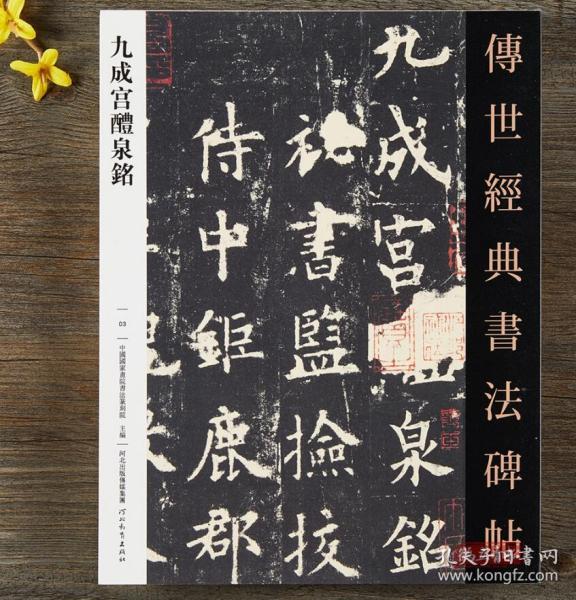 傳世經典書法碑帖
九成宮醴泉銘
03
中國國家畫院書法篆刻院 主編
河北出版傳媒集團
河北教育出版社
九成宮泉銘
祕書監撿挍
侍中鉅鹿郡
孔夫子旧书网
www.kongfz.com